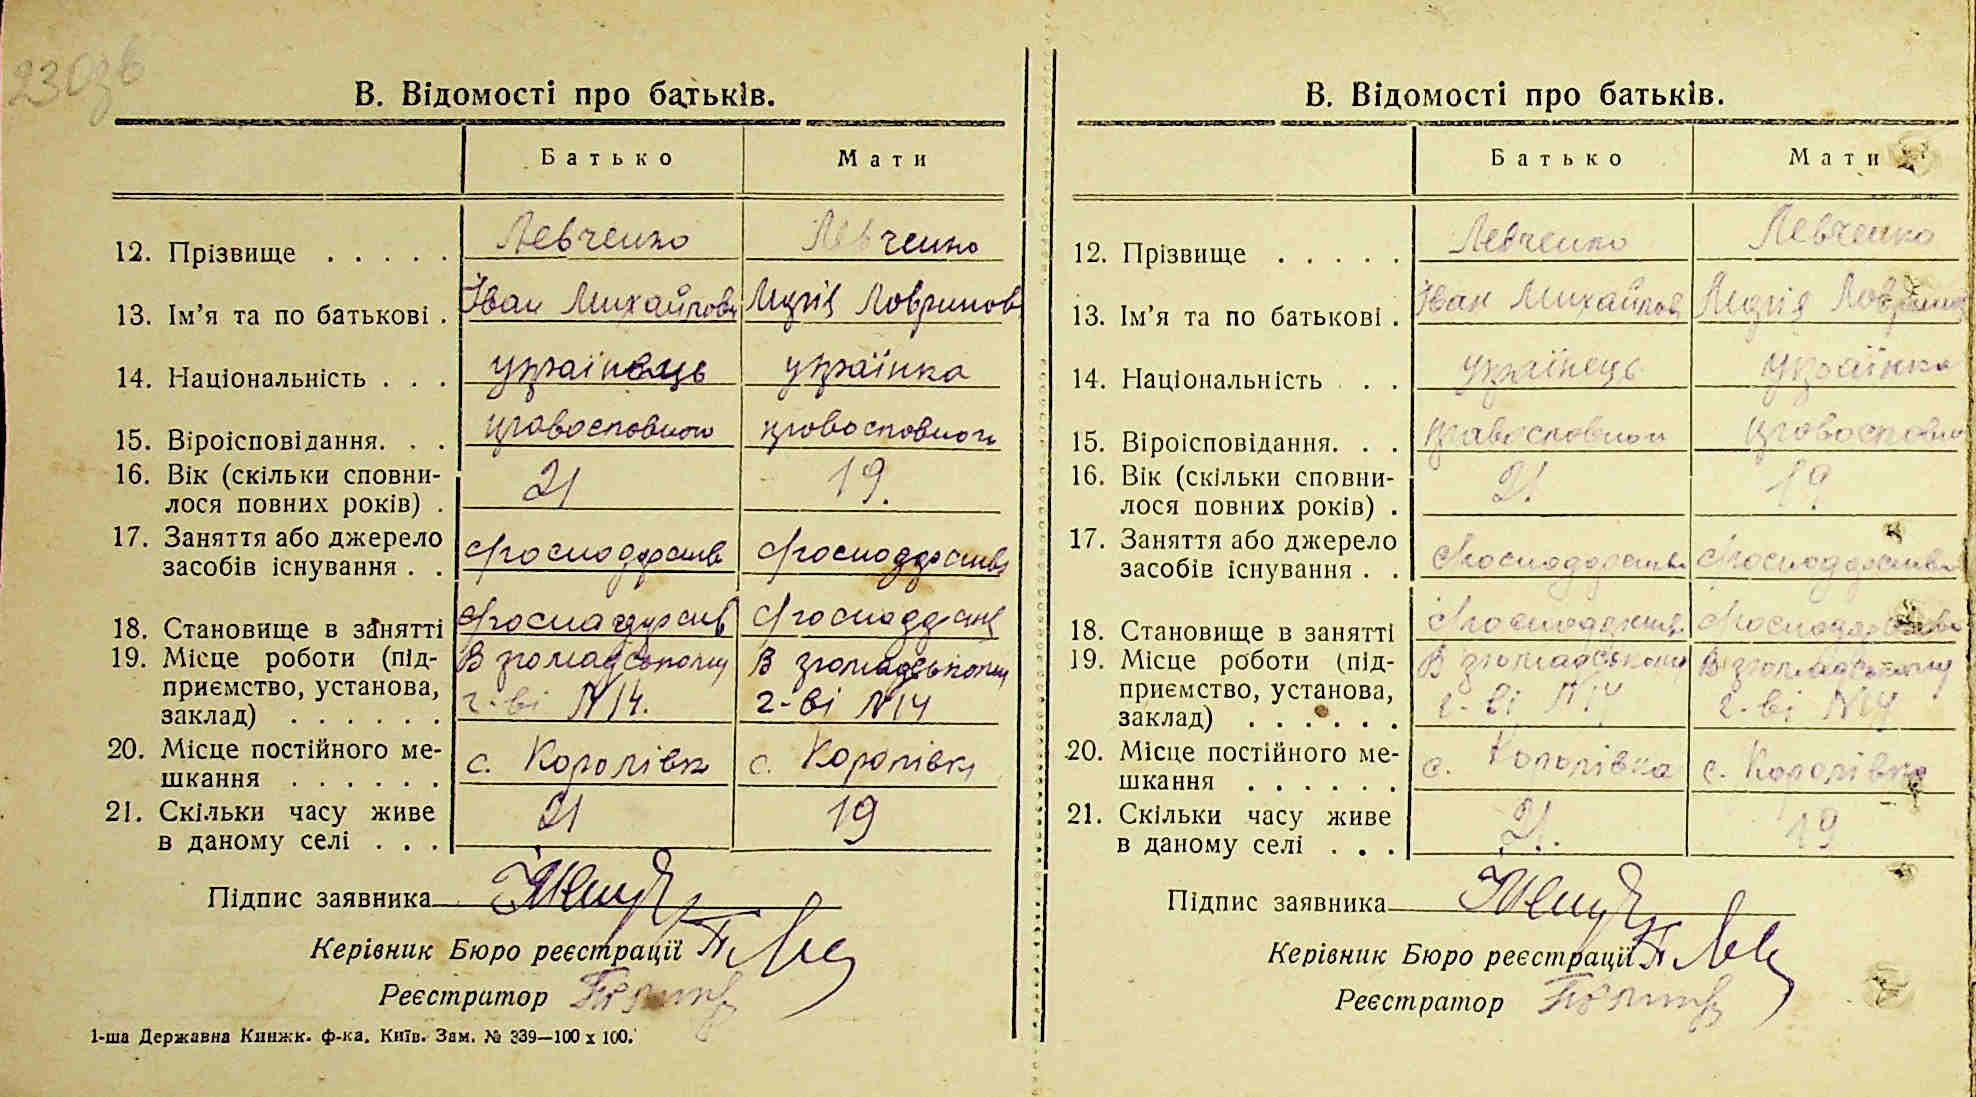 230зв
В. Відомості про батьків.
Батько Мати
12. Прізвище . . . . . Левченко Левченко
13. Ім'я та по батькові . Іван Михайлов Лідія Лавринов
14. Національність . . . українець українка
15. Віроісповідання. . . православного православного
16. Вік (скільки сповни-
лося повних років) . 21 19.
17. Заняття або джерело
засобів існування . . господарств господарств
18. Становище в занятті господарств господар
19. Місце роботи (під- В громадському В громадському
приємство, установа,
заклад) . . . . . . г-ві №14. г-ві №14
20. Місце постійного ме-
шкання . . . . . . с. Королівка с. Королівка
21. Скільки часу живе
в даному селі . . . 21 19
Підпис заявника
Керівник Бюро реєстрації
Реєстратор
1-ша Державна Книжк. ф-ка. Київ. Зам. № 339—100 х 100.
В. Відомості про батьків.
Батько Мати
12. Прізвище . . . . . Левченко Левченко
13. Ім'я та по батькові . Іван Михайлов Лідія Лавринов
14. Національність . . . українець українка
15. Віроісповідання. . . православного православно
16. Вік (скільки сповни-
лося повних років) . 21. 19
17. Заняття або джерело
засобів існування . . господарств господарств
18. Становище в занятті господар господарство
19. Місце роботи (під- В громадському В громадському
приємство, установа,
заклад) . . . . . . г-ві №14 г-ві №14
20. Місце постійного ме-
шкання . . . . . . с. Королівка с. Королівка
21. Скільки часу живе
в даному селі . . . 21. 19
Підпис заявника
Керівник Бюро реєстрації
Реєстратор